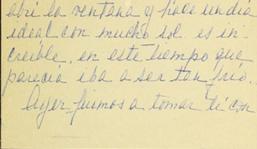 abrí la ventana y hace un día
ideal con mucho sol. es in-
creíble, en este tiempo que
parecía iba a ser tan frío.
Ayer fuimos a tomar té con